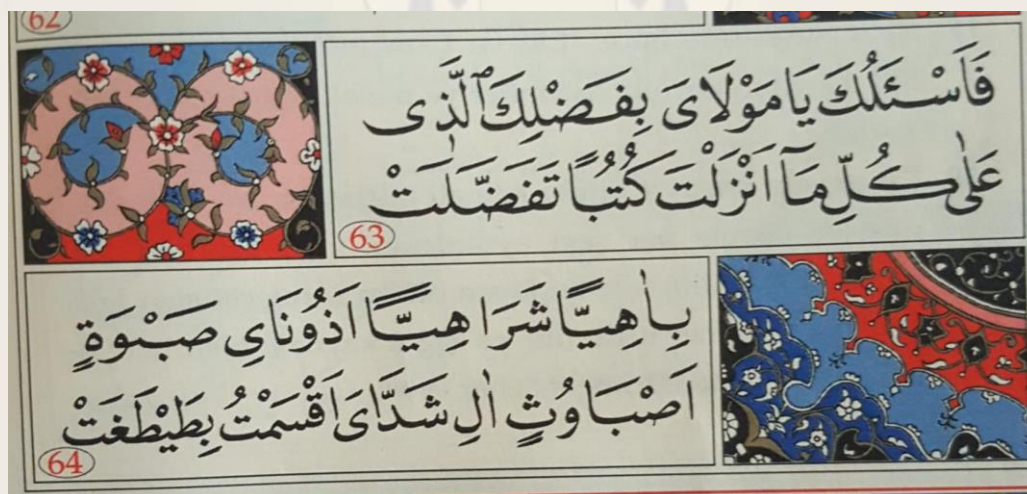 62
فَاَسْئَلُكَ يَا مَوْلَاىَ بِفَضْلِكَ ٱلَّذِى
عَلٰى كُلِّ مَٓا اَنْزَلْتَ كُتُبًا تَفَضَّلَتْ
63
بِاٰهِيًّا شَرَا هِيًّا اَذُونَاىِ صَبْوَةٍ
اَصْبَاوُثٍ اٰلِ شَدَّاىَ اَقْسَمْتُ بِطَيْطَغَتْ
64